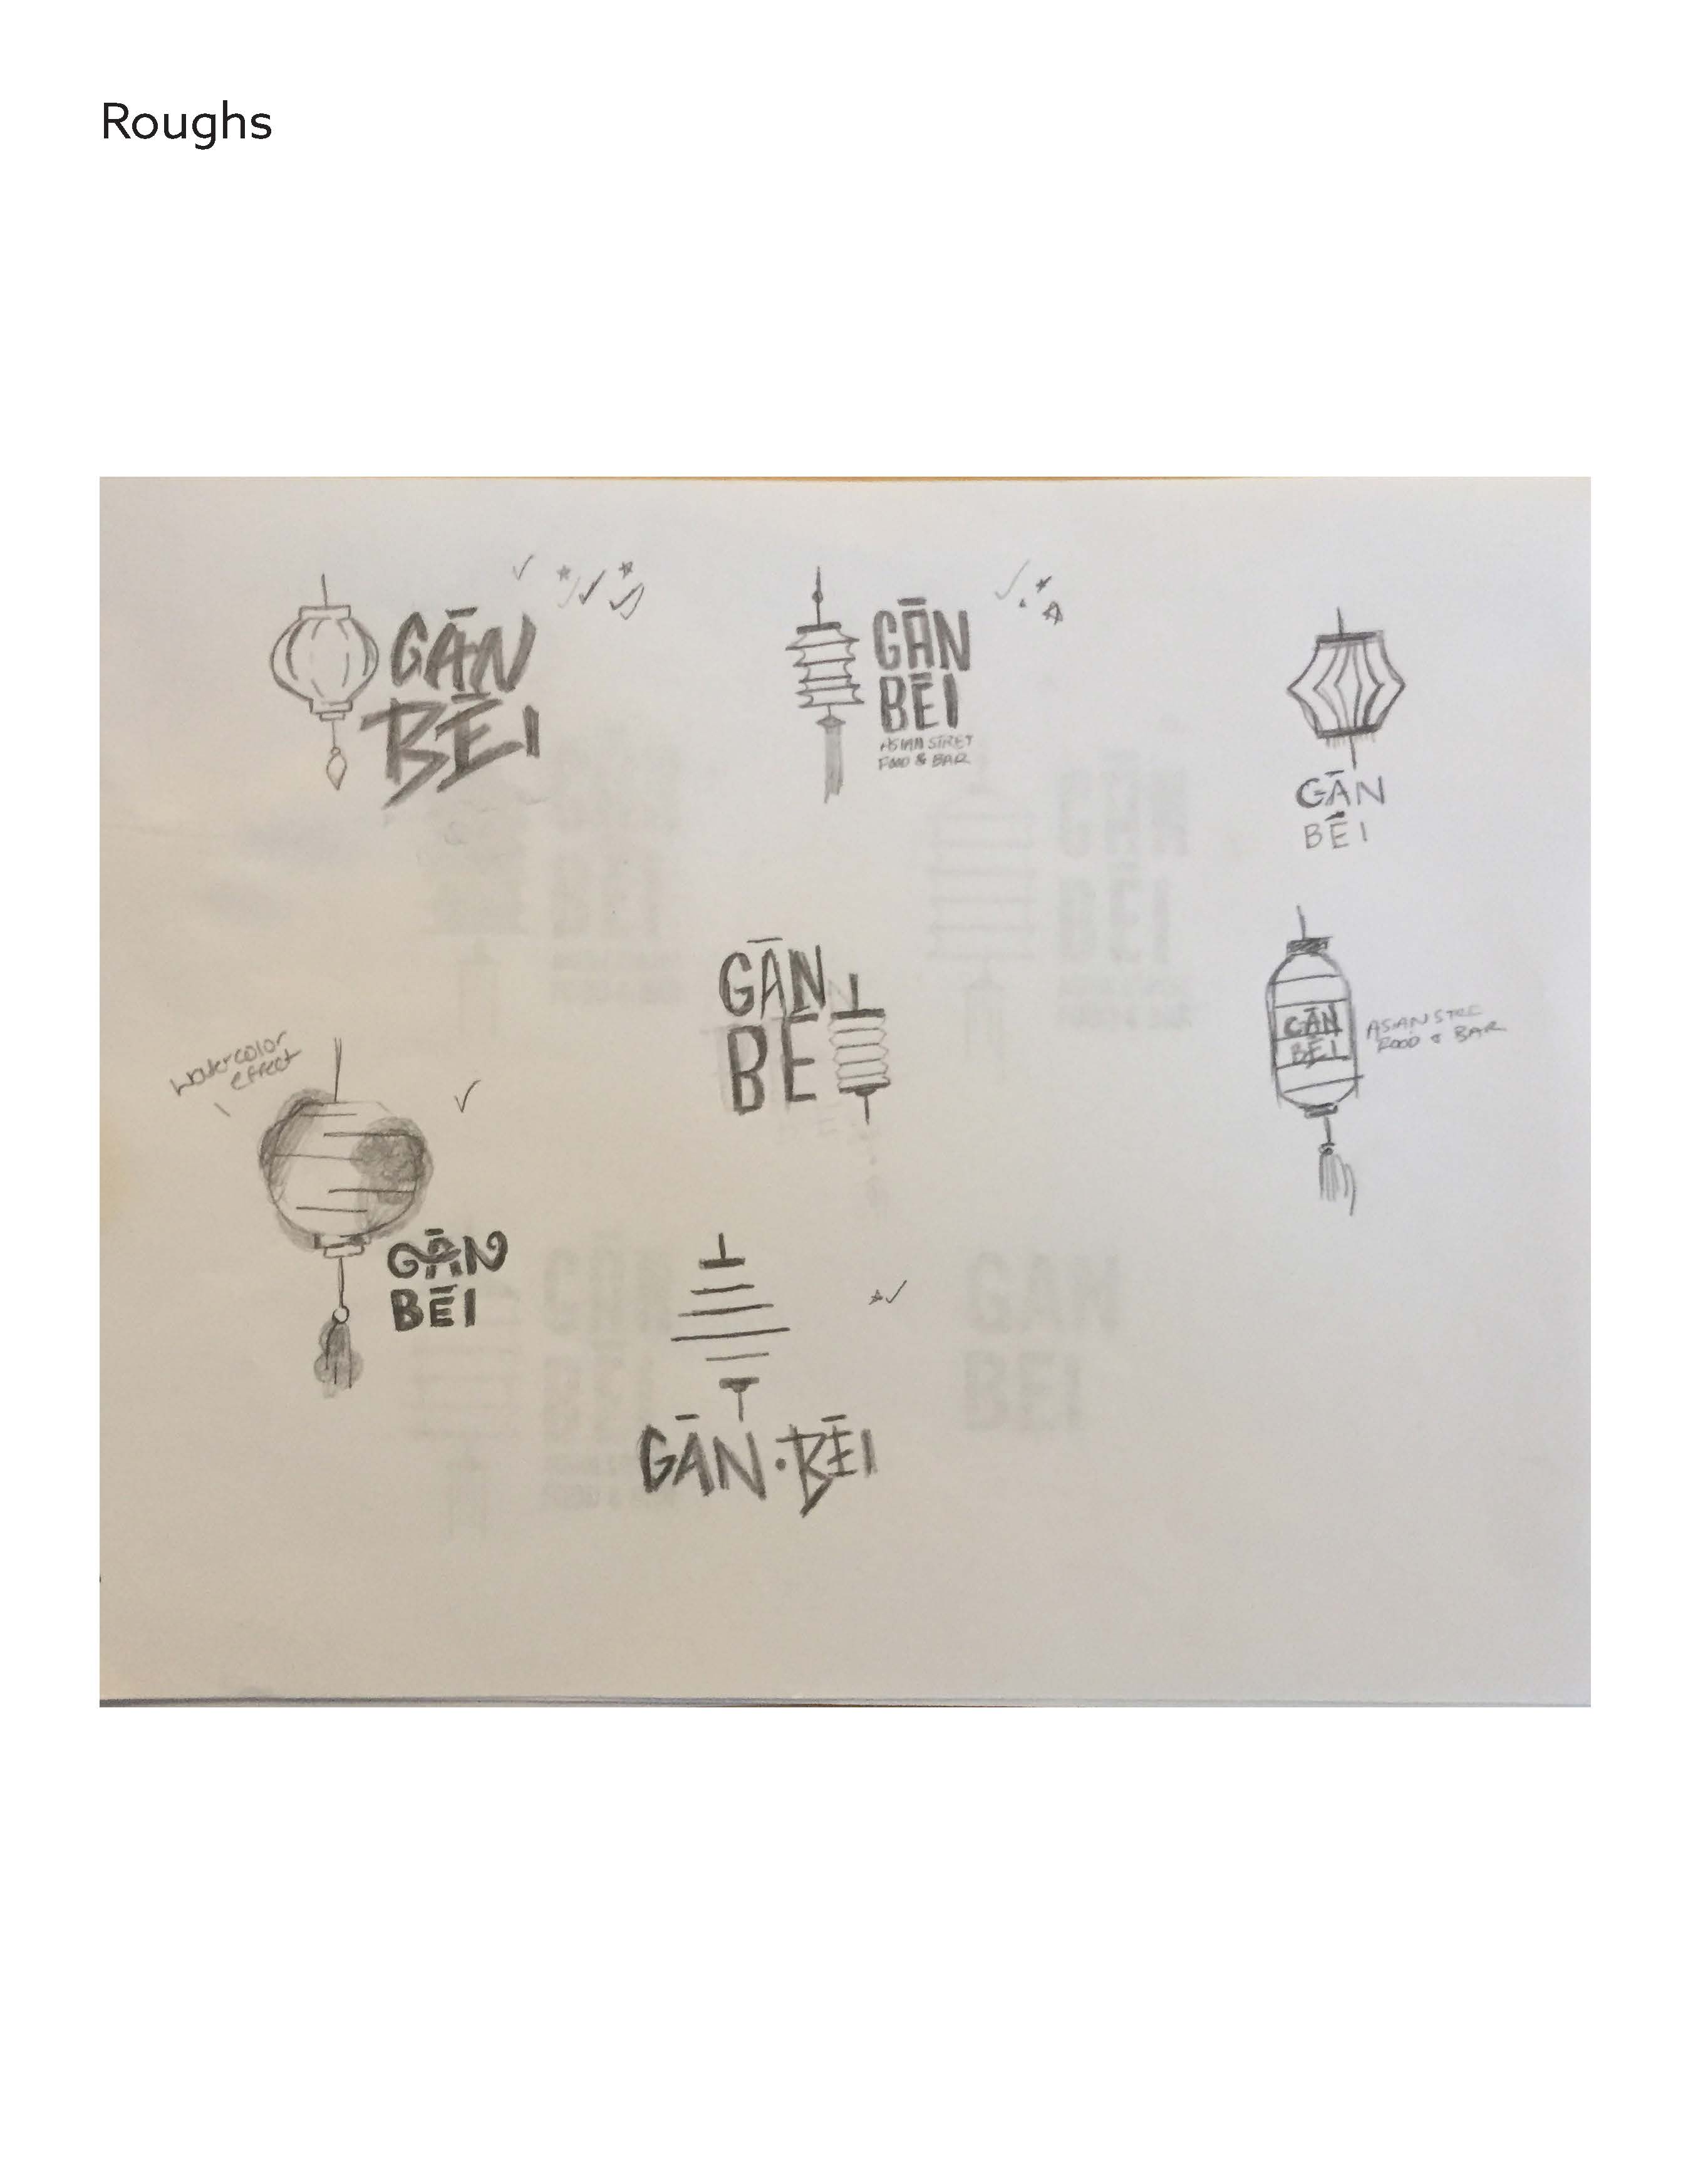 Roughs
GĀN
BĒI
GĀN
BĒI
ASIAN STRET
FOOD & BAR
GĀN
BĒI
GĀN
BE
GĀN
BĒI
ASIAN STRE
FOOD & BAR
Watercolor
effect
GĀN
BĒI
GĀN·BĒI